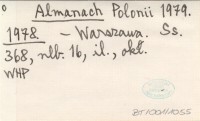 Almanach Polonii 1979.
1978. – Warszawa. Ss.
368, nlb. 16, il., okł.
WHP